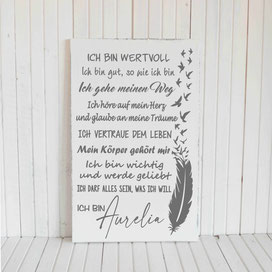 ICH BIN WERTVOLL
Ich bin gut, so wie ich bin
Ich gehe meinen Weg
Ich höre auf mein Herz
und glaube an meine Träume
ICH VERTRAUE DEM LEBEN
Mein Körper gehört mir
Ich bin wichtig
und werde geliebt
ICH DARF ALLES SEIN, WAS ICH WILL
ICH BIN Aurelia